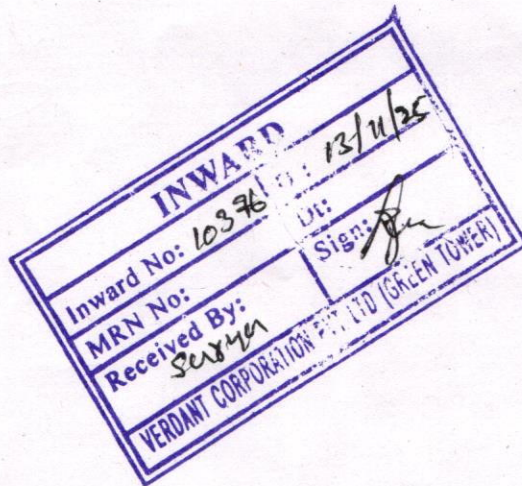 INWARD
Inward No: 10376 Dt: 13/11/25
MRN No: Dt:
Received By: Sign:
Surya
VERDANT CORPORATION PVT. LTD (GREEN TOWER)